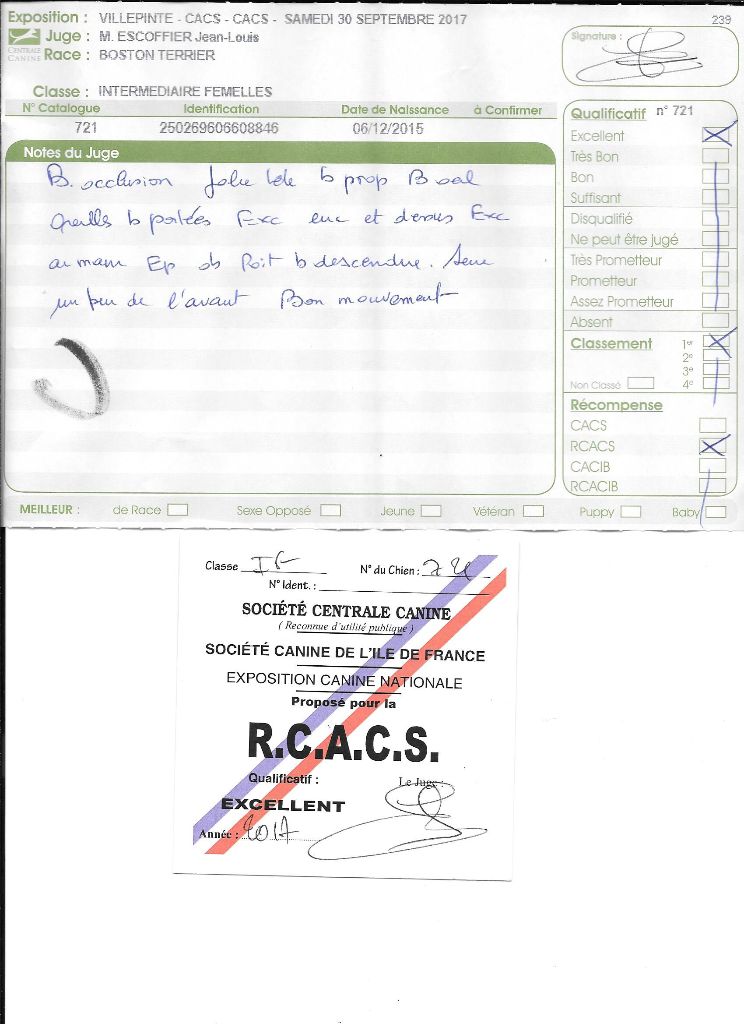 Exposition : VILLEPINTE - CACS - CACS - SAMEDI 30 SEPTEMBRE 2017
239
CENTRALE CANINE
Juge : M. ESCOFFIER Jean-Louis
Race : BOSTON TERRIER
Signature :
Classe : INTERMEDIAIRE FEMELLES
N° Catalogue Identification Date de Naissance à Confirmer
721 250269606608846 06/12/2015
Notes du Juge
B. occlusion Jolie tête b prop B oeil
Oreilles b portées Exc enc et dessus Exc
Ep ob Poit b descendue. Serre
un peu de l'avant Bon mouvement
Qualificatif n° 721
Excellent
Très Bon
Bon
Suffisant
Disqualifié
Ne peut être jugé
Très Prometteur
Prometteur
Assez Prometteur
Absent
Classement 1er
2e
3e
Non Classé 4e
Récompense
CACS
RCACS
CACIB
RCACIB
MEILLEUR : de Race Sexe Opposé Jeune Vétéran Puppy Baby
Classe IF N° du Chien : 721
N° Ident. :
SOCIÉTÉ CENTRALE CANINE
( Reconnue d'utilité publique )
SOCIÉTÉ CANINE DE L'ILE DE FRANCE
EXPOSITION CANINE NATIONALE
Proposé pour la
R.C.A.C.S.
Qualificatif : Le Juge :
EXCELLENT
Année : 2017